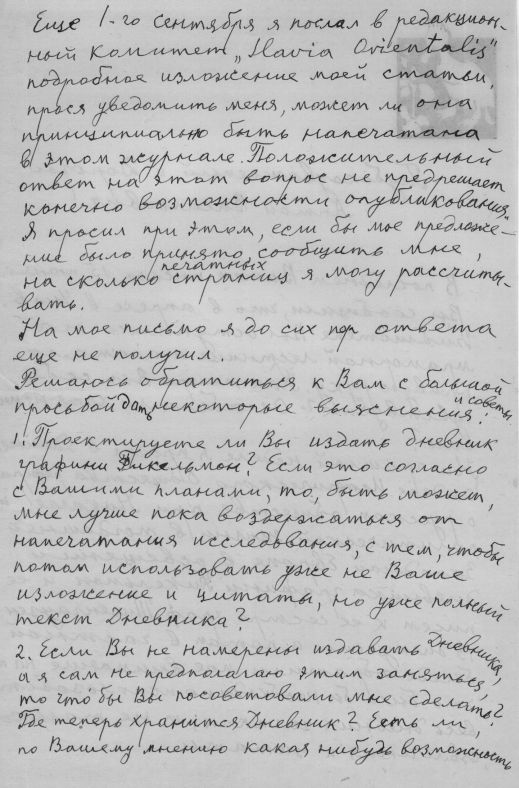 Еще 1-го сентября я послал в редакцион-
ный комитет „Slavia Orientalis"
подробное изложение моей статьи,
прося уведомить меня, может ли она
принципиально быть напечатана
в этом журнале. Положительный
ответ на этот вопрос не предрешает
конечно возможности опубликования.
Я просил при этом, если бы мое предложе-
ние было принято, сообщить мне,
на сколько печатных страниц я могу рассчиты-
вать.
На мое письмо я до сих пор ответа
еще не получил.
Решаюсь обратиться к Вам с большой
просьбой дать некоторые выяснения и советы:
1. Проектируете ли Вы издать дневник
графини Фикельмон? Если это согласно
с Вашими планами, то, быть может,
мне лучше пока воздержаться от
напечатания исследования, с тем, чтобы
потом использовать уже не Ваше
изложение и цитаты, но уже полный
текст Дневника?
2. Если Вы не намерены издавать Дневника,
а я сам не предполагаю этим заняться,
то что бы Вы посоветовали мне сделать?
Где теперь хранится Дневник? Есть ли,
по Вашему мнению какая нибудь возможность